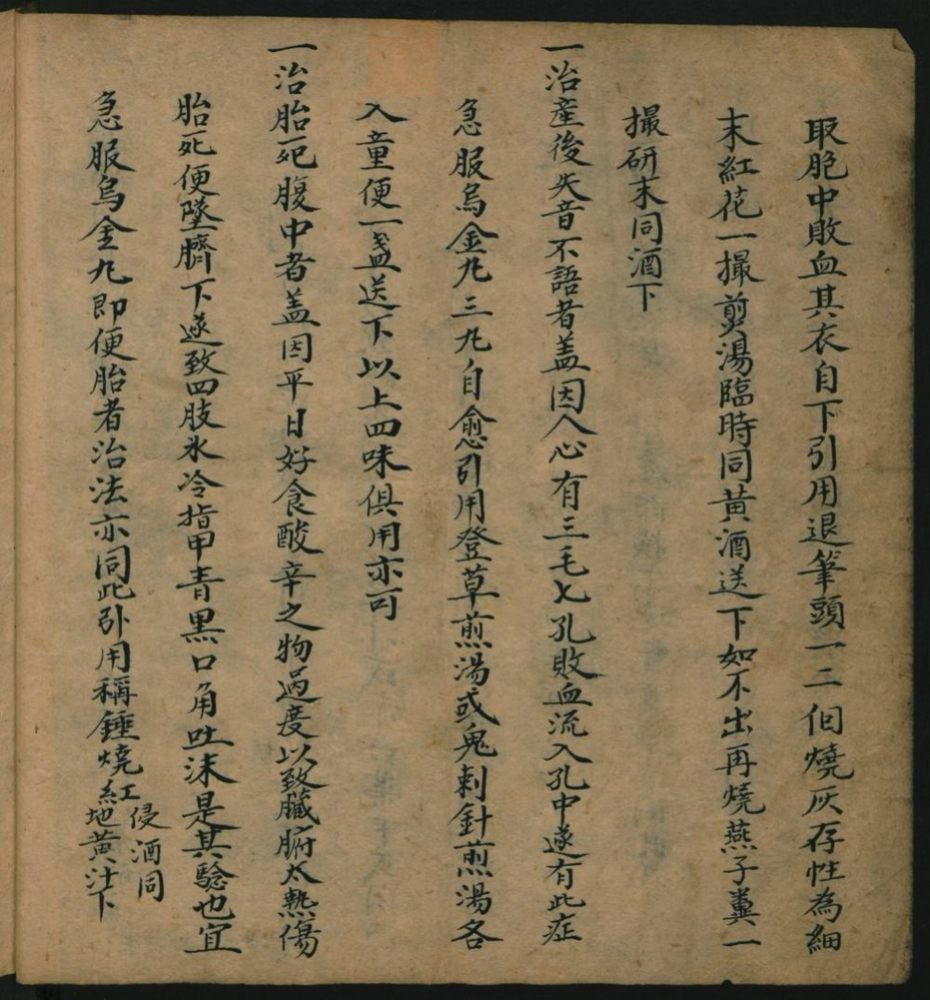 取胞中敗血其衣自下引用退筆頭一二個燒灰存性為細
末紅花一撮煎湯臨時同黃酒送下如不出再燒燕子糞一
撮研末同酒下
一治產後失音不語者盖因人心有三毛七孔敗血流入孔中遂有此症
急服烏金九三九自愈引用登草煎湯或鬼刺針煎湯各
入童便一盞送下以上四味俱用亦可
一治胎死腹中者盖因平日好食酸辛之物過度以致臟腑太熱傷
胎死便墜臍下遂致四肢氷冷指甲青黑口角吐沫是其驗也宜
急服烏金九即便胎者治法亦同此引用稱錘燒紅侵酒同
地黃汁下